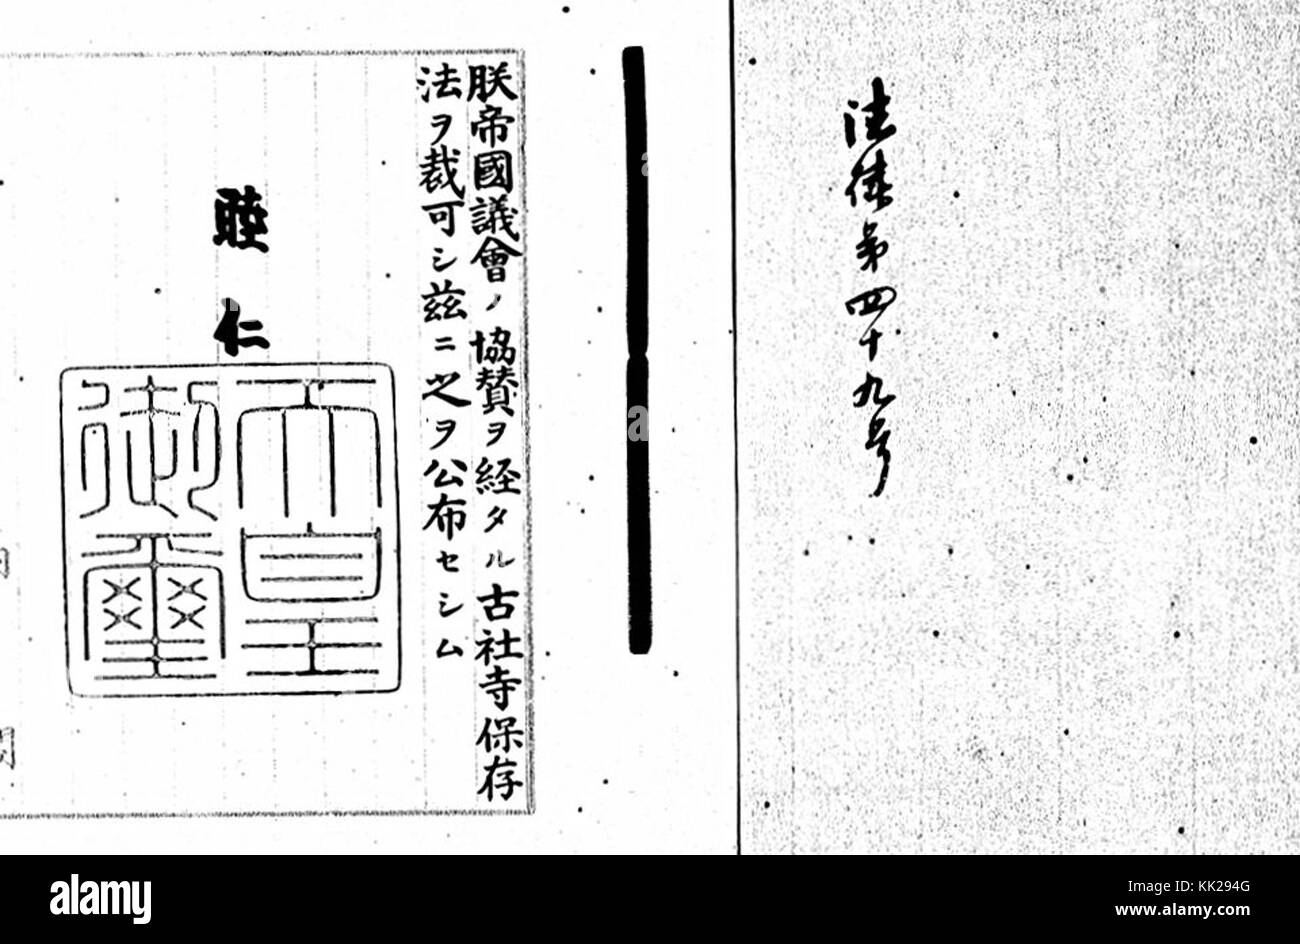 法律第四十九号
朕帝國議會ノ協賛ヲ経タル古社寺保存
法ヲ裁可シ茲ニ之ヲ公布セシム
睦仁
天皇
御璽
a
a
alamy
Image ID: KK294G
www.alamy.com